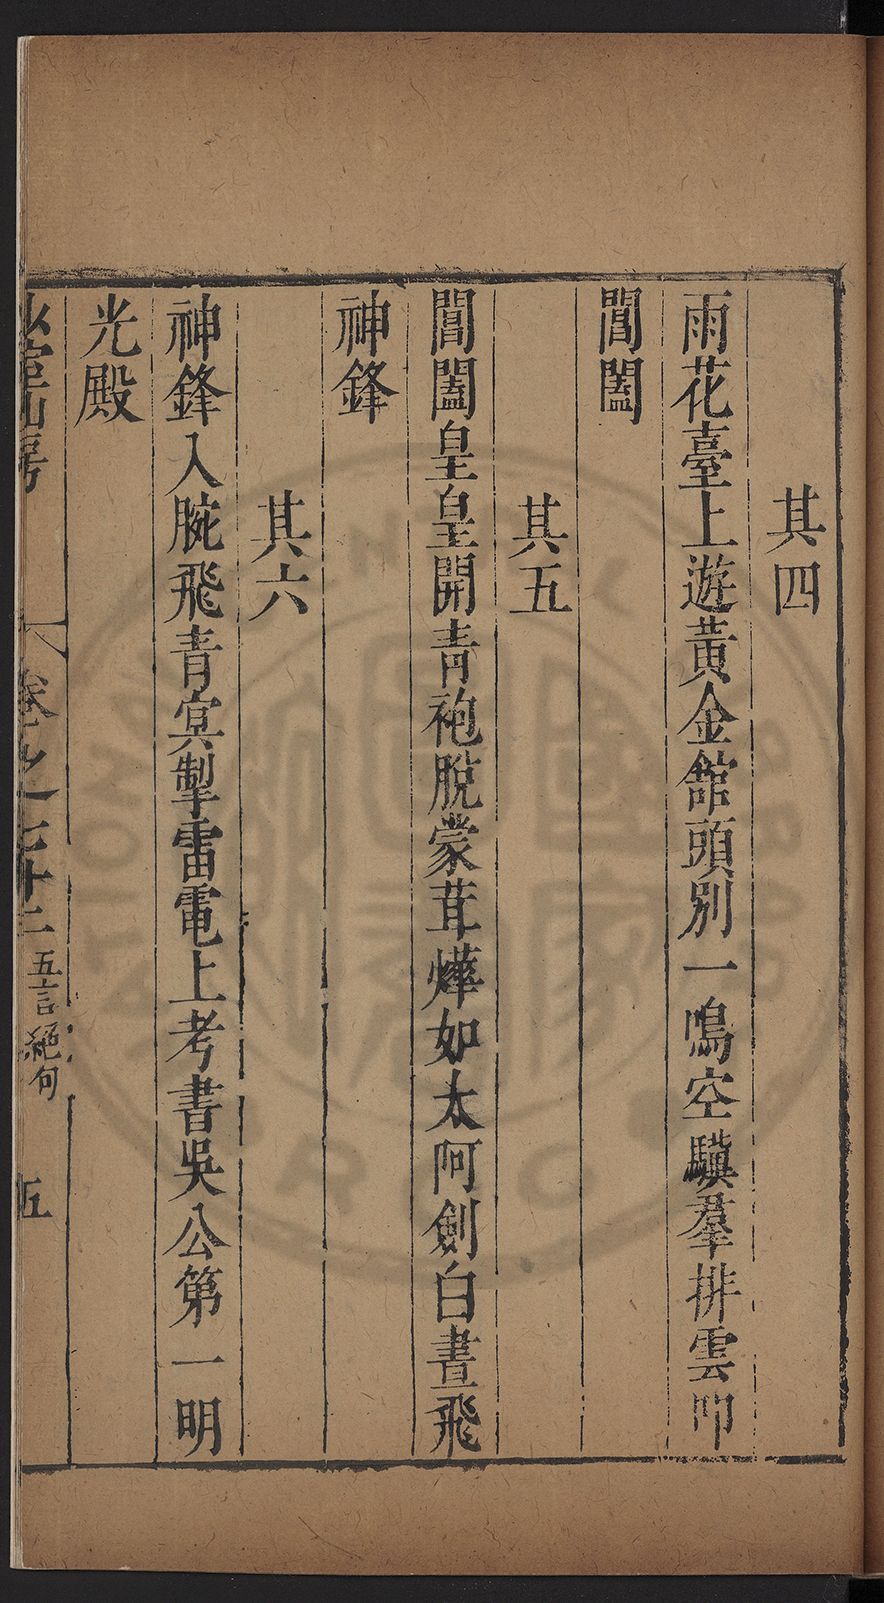 其四
雨花臺上遊黃金館頭別一鳴空驥羣排雲叩
閶闔
其五
閶闔皇皇開青袍脫蒙茸燁如太阿劍白晝飛
神鋒
其六
神鋒入腕飛青冥掣雷電上考書吳公第一明
光殿
室山房 卷之七十二 五言絕句 五